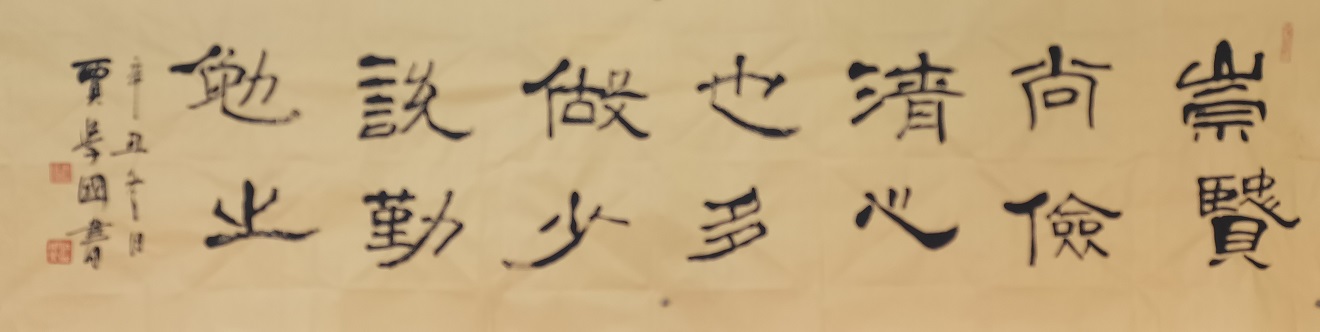 崇賢
尚儉
清心
也多
做少
説勤
勉之
辛丑冬月
賈學國書